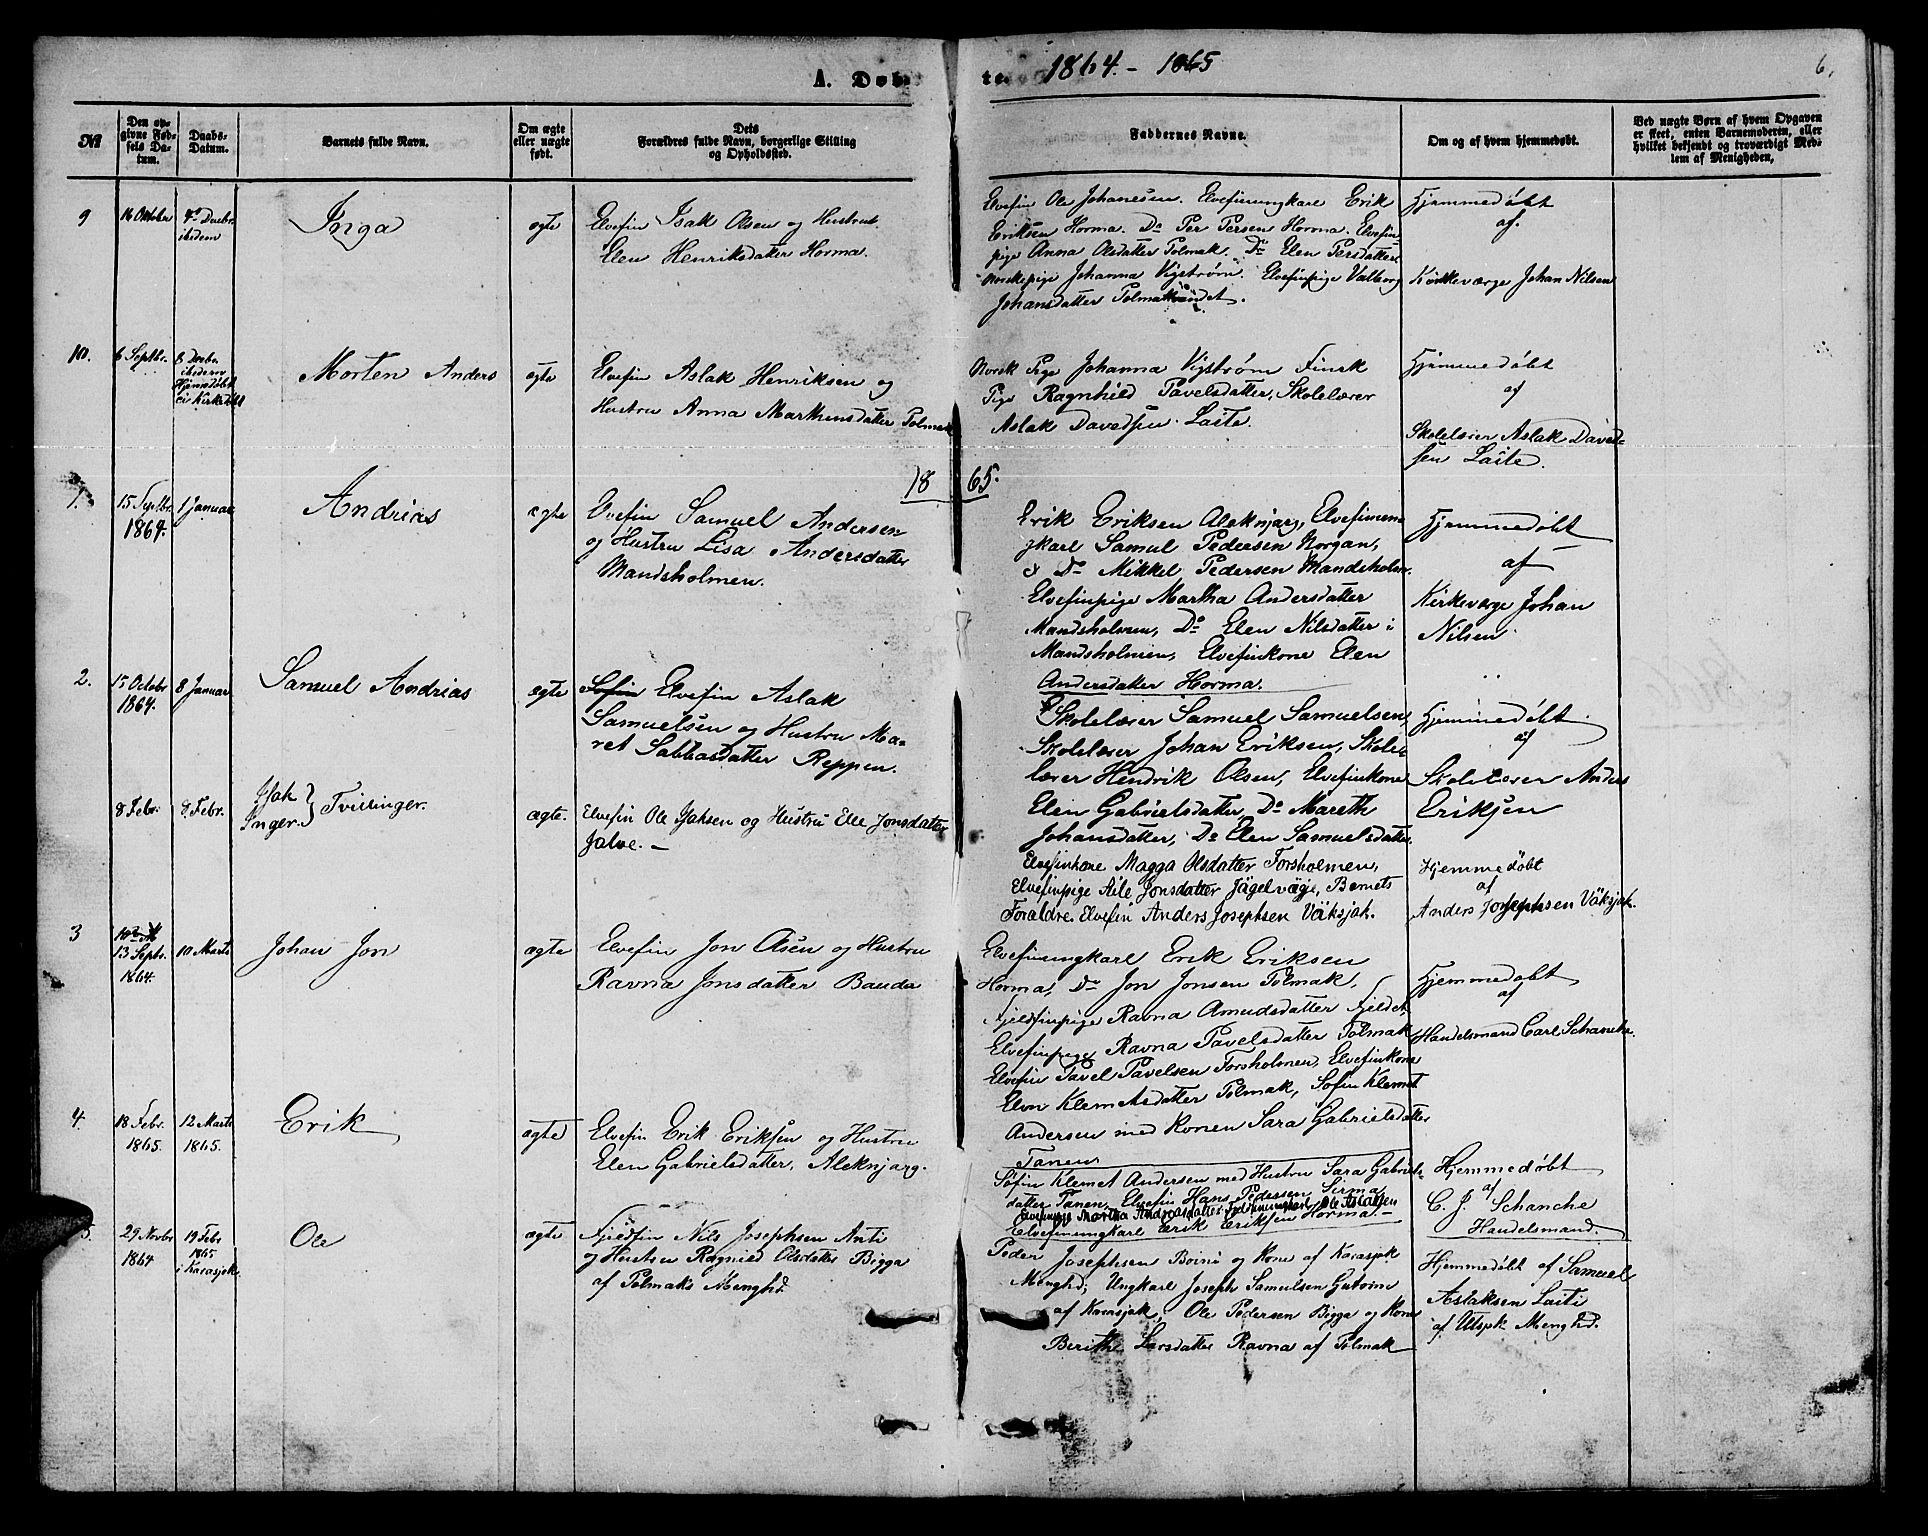 A. Døb
te 1864. - 1865
6.
№
Den opgivne Fødsels Datum.
Daabs-Datum.
Barnets fulde Navn.
Om ægte eller uægte født.
Dets Forældres fulde Navn, borgerlige Stilling og Opholdssted.
Faddernes Navne.
Om og af hvem hjemmedøbt.
Ved uægte Børn af hvem Opgaven er skeet, enten Barnemoderen, eller hvilket bekjendt og troværdigt Medlem af Menigheden,
9
16 Oktober
4de Decbr.
ibidem
Inga
egte
Elvefin Isak Olsen og Hustru
Elen Henriksdatter Horma.
Elvefin Ole Johanesen. Elvefinungkarl Erik
Eriksen Horma. Do Per Persen Horma. Elvefin-
pige Anna Olsdatter Polmak. Do Elen Persdatter
Norskepige Johanna Vigstrøm. Elvefinpige Valborg
Johansdatter Polmakvandet.
Hjemmedøbt
af.
Kirkeværge Johan Nilsen
10.
6 Septbr.
8 Decbr.
ibidem
Hjemdøbt
ei Kirkedbt
Morten Anders
egte
Elvefin Aslak Henriksen og
Hustru Anna Markusdatter Polmak
Norsk Pige Johanna Vigstrøm Finsk
Pige Ragnhild Pavelsdatter, Skolelærer
Aslak Davedsen Laite.
Hjemmedøbt
af
Skolelærer Aslak David-
sen Laite.
1865.
1.
15 Septbr
1864.
1 Januar
Andrias
egte
Elvefin Samuel Andersen
og Hustru Lisa Andersdatter
Mandsholmen.
Erik Eriksen Aleknjarg, Elvefinun-
gkarl Samul Pedersen Norgan,
& Do Mikkel Pedersen Mandsholm.
Elvefinpige Martha Andersdatter
Mandsholmen, Do Elen Nilsdatter i
Mandsholmen, Elvefinkone Elen
Andersdatter Horma.
Hjemmedøbt
af
Kirkeværge Johan
Nilsen
2.
15 Octobr
1864.
8 Januar
Samuel Andrias
ægte
Søfin Elvefin Aslak
Samuelsen og Hustru Ma-
ret Sabbasdatter Reppen.
Skolelærer Samuel Samuelsen,
Skolelærer Johan Eriksen, Skole-
lærer Hendrik Olsen, Elvefinkone
Elen Gabrielsdatter, Do Mareth
Johansdatter, Do Elen Samuelsdatter
Hjemmedøbt
af
Skolelærer Anders
Eriksen
8 Febr.
8 Febr.
Isak
Inger. } Tvillinger.
ægte.
Elvefin Ole Isaksen og Hustru Elle Jonsdatter
Jalve. —
Elvefinkone Magga Olsdatter Forsholmen,
Elvefinpige Aile Jonsdatter Jägelvägje, Barnets
Forældre. Elvefin Anders Josephsen Väksjak.
Hjemmedöbt
af
Anders Josephsen Väksjak.
3
13 Septbr.
1864.
10 Marts
Johan Jon
ægte
Elvefin Jon Olsen og Hustru
Ravna Jonsdatter Banda
Elvefinungkarl Erik Eriksen
Horma, Do Jon Jonsen Polmak,
Fjeldfinpige Ravna Amudsdatter Fjeldet,
Elvefinpige Ravna Pavelsdatter Polmak
Elvefin Pavel Pavelsen Forsholmen, Elvefinkone
Elen Klemetsdatter Polmak, Søfin Klemet
Andersen med Konen Sara Gabrielsdatter
Tanen
Hjemmedøbt
af
Handelsmand Carl Schanche.
4.
18 Febr.
1865.
12 Marts
1865.
Erik
ægte
Elvefin Erik Eriksen og Hustru
Elen Gabrielsdatter, Aleknjarg.
Søfin Klemet Andersen med Hustru Sara Gabriels-
datter Tanen, Elvefin Hans Pedersen Sirma
Elvefinpige Martha Andreasdatter. Ole Aslaksen
Elvefinungkarl Erik Eriksen Horma. —
Hjemmedøbt
af
C. J. Schanche
Handelsmand.
5.
29 Novbr
1864
19 Febr
1865
i Karasjok
Ole
ægte
Fjeldfin Nils Josephsen Anti
og Hustru Ragnied Olsdatter Bigga
af Polmaks Menghd.
Peder Josephsen Boinö og Kone af Karasjok
Menghd, Ungkarl Joseph Samulsen Gutorm
af Karasjok, Ole Pedersen Bigga og Kone
Berithe Larsdatter Ravna af Polmak
Hjemmedøbt af Samuel
Aslaksen Laiti
af Utsjok Menghd.